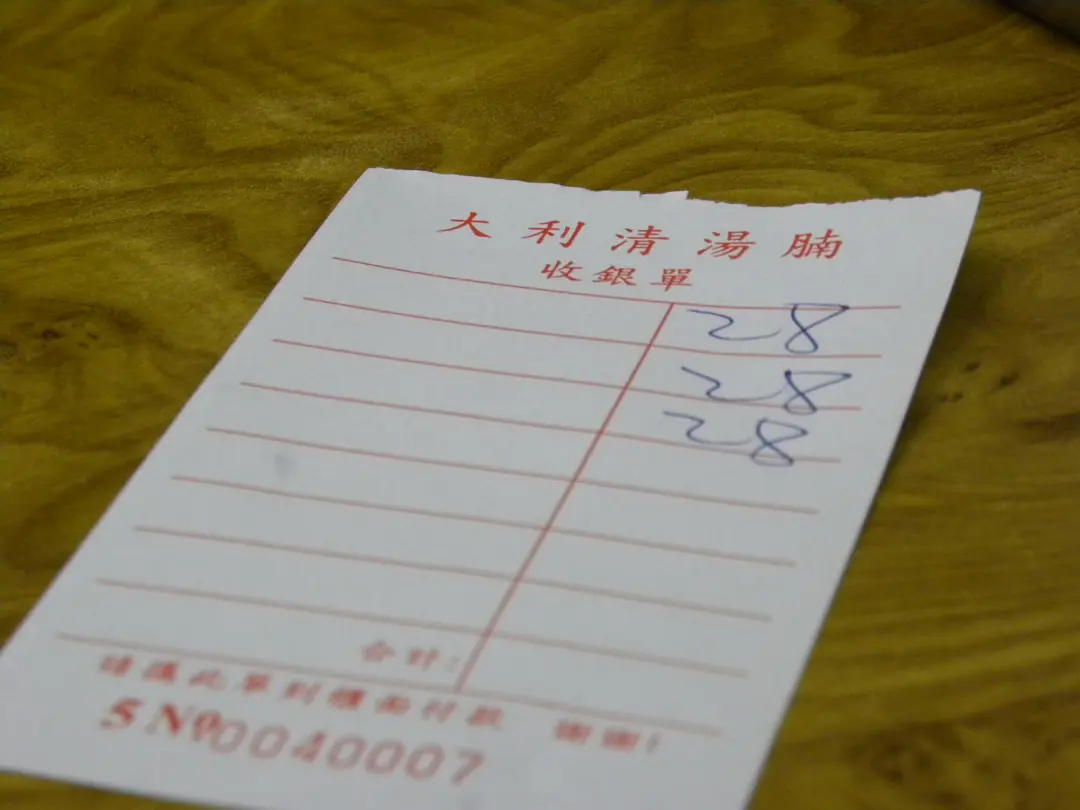 大利清湯腩
收銀單
28
28
28
合計:
請攜此單到櫃面付款 謝謝!
5 No 0040007